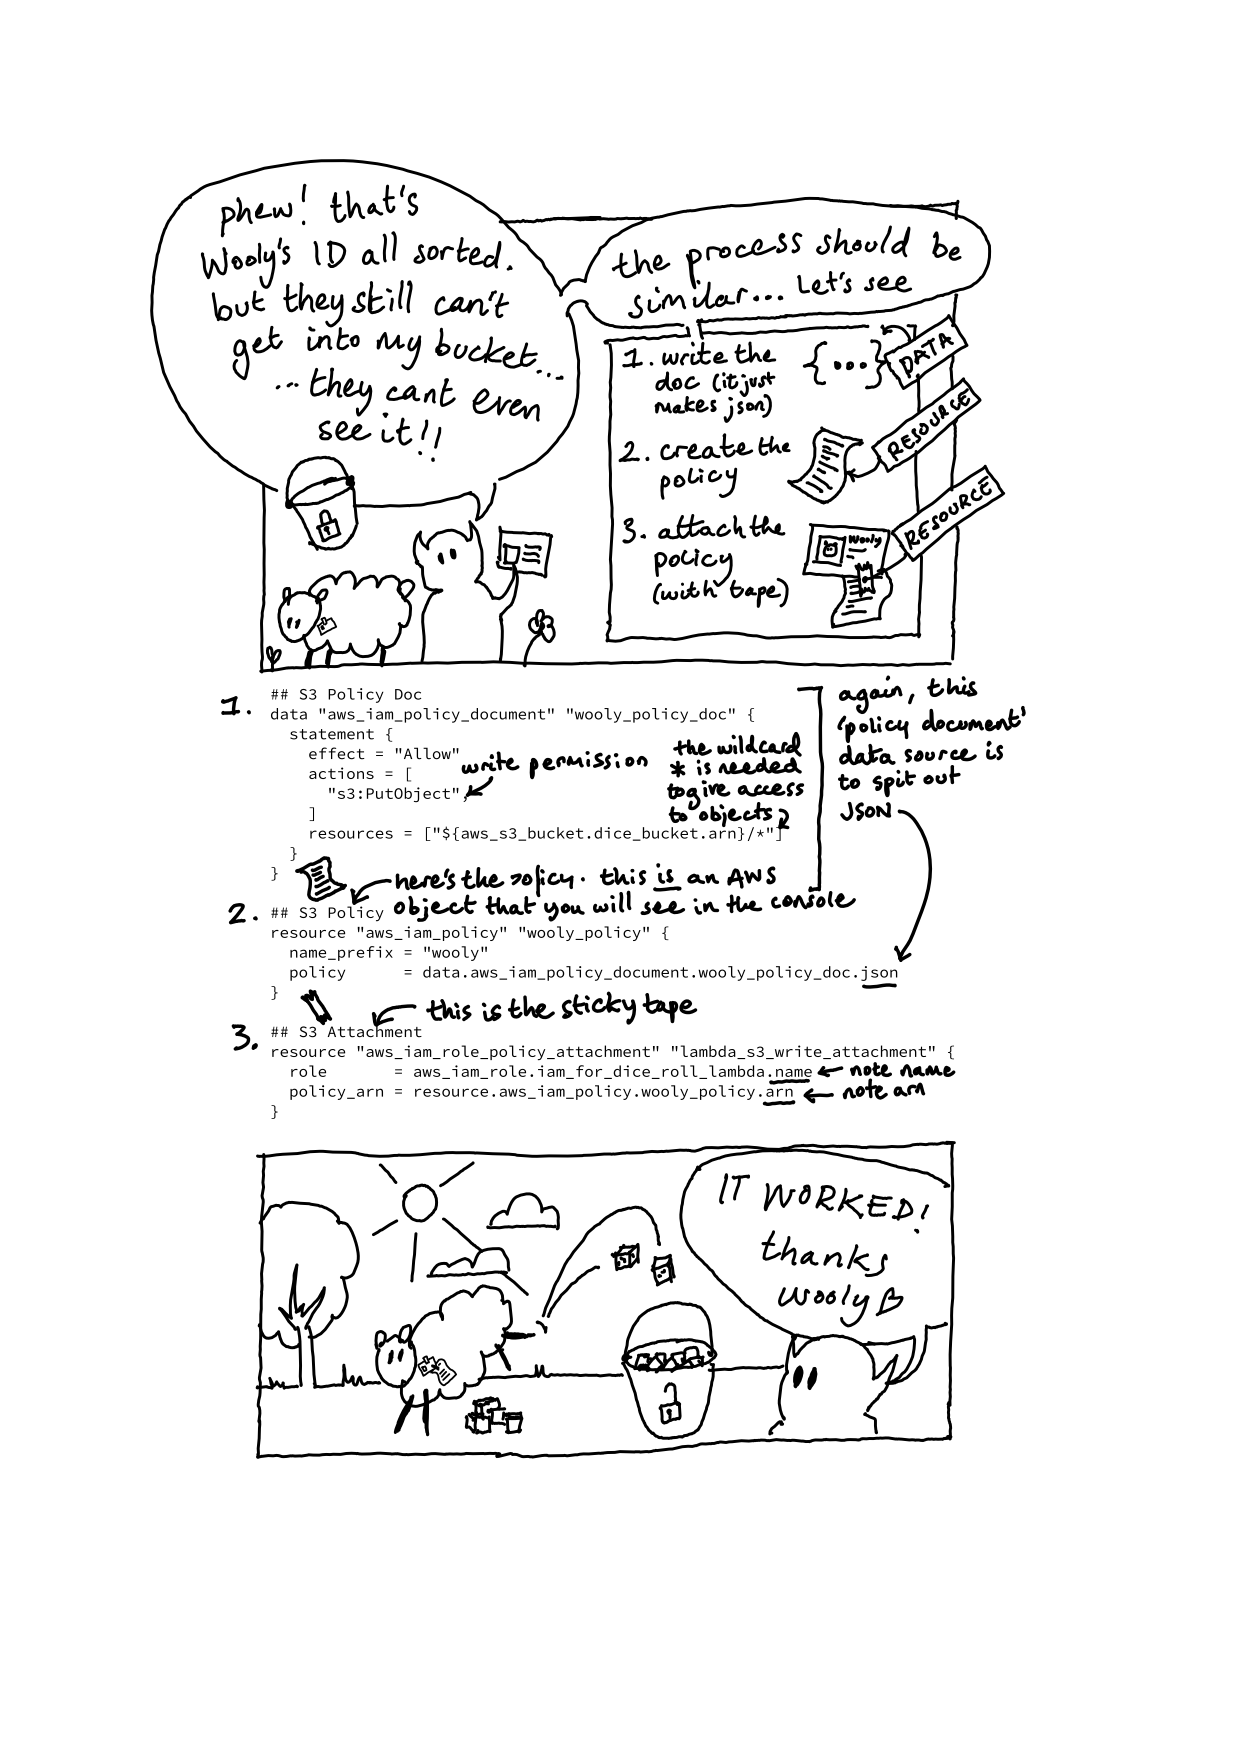 phew! that's
Wooly's ID all sorted.
but they still can't
get into my bucket...
...they cant even
see it!!
the process should be
similar... Let's see
1. write the
doc (it just
makes json)
{...}
DATA
2. create the
policy
RESOURCE
3. attach the
policy
(with tape)
Wooly
RESOURCE
1.
## S3 Policy Doc
data "aws_iam_policy_document" "wooly_policy_doc" {
statement {
effect = "Allow"
actions = [
"s3:PutObject",
]
resources = ["${aws_s3_bucket.dice_bucket.arn}/*"]
}
}
write permission
the wildcard
* is needed
to give access
to objects
again, this
'policy document'
data source is
to spit out
JSON
here's the policy. this is an AWS
object that you will see in the console
2.
## S3 Policy
resource "aws_iam_policy" "wooly_policy" {
name_prefix = "wooly"
policy      = data.aws_iam_policy_document.wooly_policy_doc.json
}
this is the sticky tape
3.
## S3 Attachment
resource "aws_iam_role_policy_attachment" "lambda_s3_write_attachment" {
role       = aws_iam_role.iam_for_dice_roll_lambda.name
note name
policy_arn = resource.aws_iam_policy.wooly_policy.arn
note arn
}
IT WORKED!
thanks
wooly